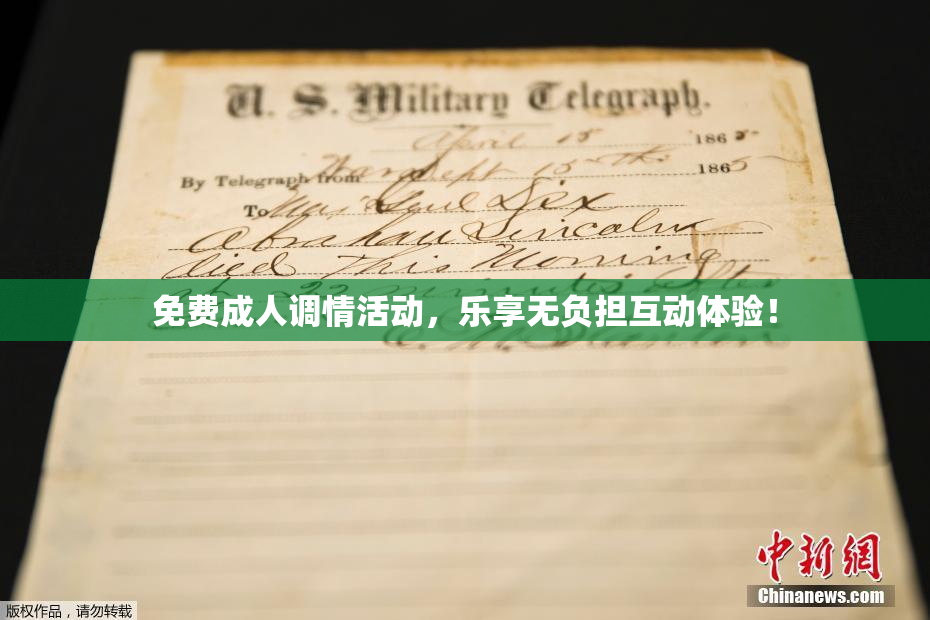 U. S. Military Telegraph.
April 15 1865
By Telegraph from War Dept 15th 1865
To Maj Genl Dix
Abraham Lincoln
died This Morning
at 22 minutes after
免费成人调情活动，乐享无负担互动体验！
E. M. Stanton
中新網
Chinanews.com
版权作品，请勿转载